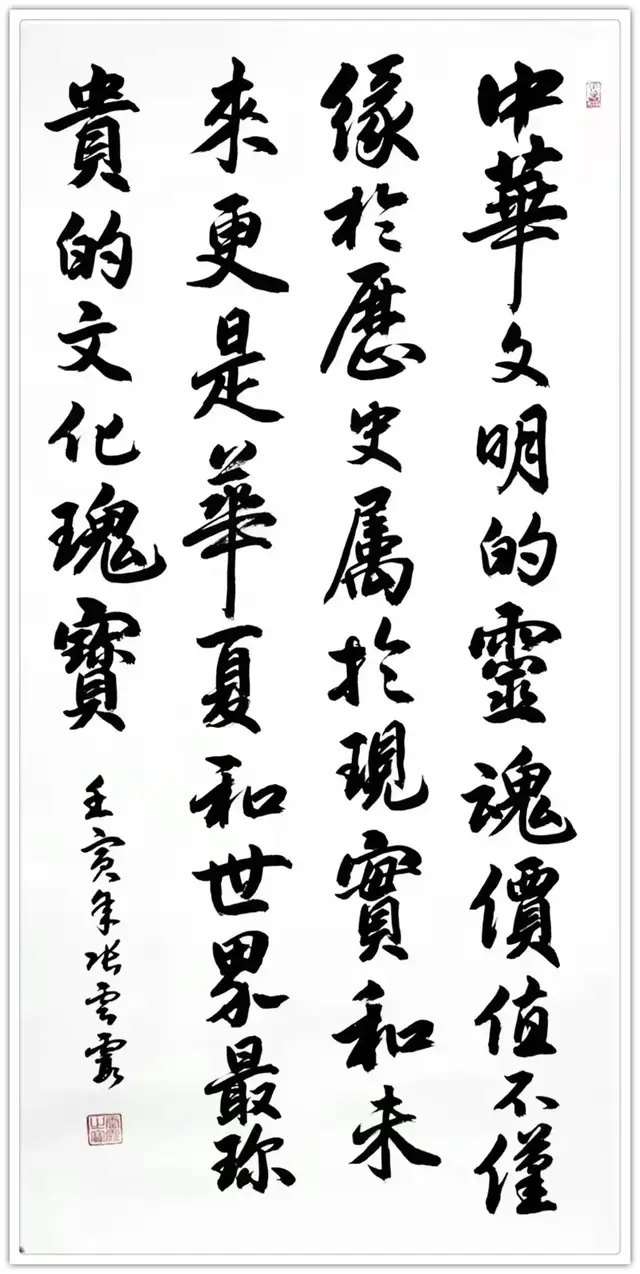 中華文明的靈魂價值不僅
緣於歷史属於現實和未
來更是華夏和世界最珎
貴的文化瑰寶
壬寅年张雲霞